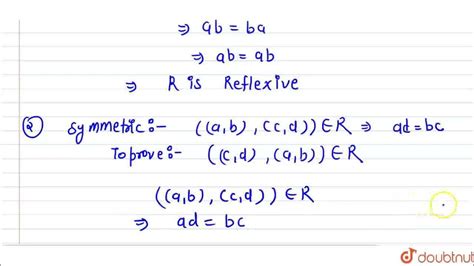 ⇒ ab = ba
⇒ ab = ab
⇒ R is Reflexive
② Symmetric:- ((a,b), (c,d)) ∈ R ⇒ ad = bc
To prove:- ((c,d), (a,b)) ∈ R
((a,b), (c,d)) ∈ R
⇒ ad = bc
doubtnut